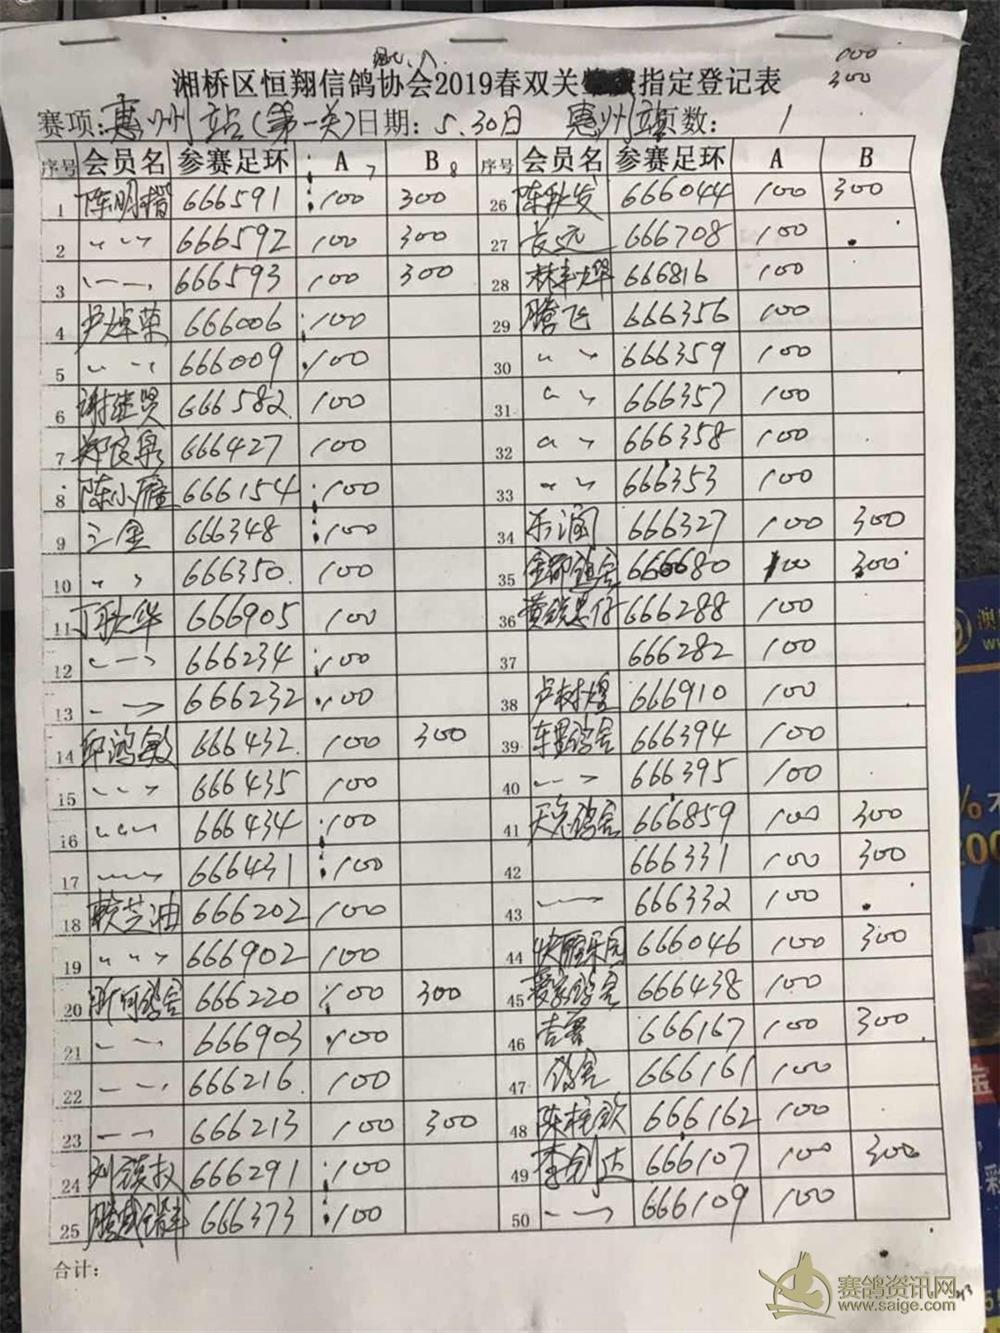 100
300
湘桥区恒翔信鸽协会2019春双关 指定登记表
赛项: 惠州站(第一关) 日期: 5.30日 惠州 页数: 1
序号 会员名 参赛足环 A 7 B 8 序号 会员名 参赛足环 A B
1 陈明 666591 100 300 26 陈秋发 666044 100 300
2 〃 〃 666592 100 300 27 长远 666708 100
3 666593 100 300 28 林 666816 100
4 卢 荣 666006 100 29 腾飞 666356 100
5 〃 〃 666009 100 30 〃 〃 666359 100
6 谢继贤 666582 100 31 〃 〃 666357 100
7 郑良泉 666427 100 32 〃 〃 666358 100
8 陈小 666154 100 33 〃 〃 666353 100
9 三金 666348 100 34 666327 100 300
10 〃 〃 666350 100 35 鸽舍 666680 100 300
11 丁 华 666905 100 36 黄 仔 666288 100
12 666234 100 37 666282 100
13 666232 100 38 卢树煌 666910 100
14 邱鸿敏 666432 100 300 39 鸽舍 666394 100
15 666435 100 40 666395 100
16 666434 100 41 天 鸽舍 666859 100 300
17 666431 100 42 666331 100 300
18 赖芝油 666202 100 43 666332 100
19 〃 〃 666902 100 44 乐园 666046 100 300
20 鸽舍 666220 100 300 45 爱家鸽舍 666438 100
21 666903 100 46 吉 666167 100 300
22 666216 100 47 鸽舍 666161 100
23 666213 100 300 48 陈 666162 100
24 刘 叔 666291 100 49 李剑达 666107 100 300
25 腾 666373 100 50 666109 100
合计:
赛鸽资讯网
www.saige.com